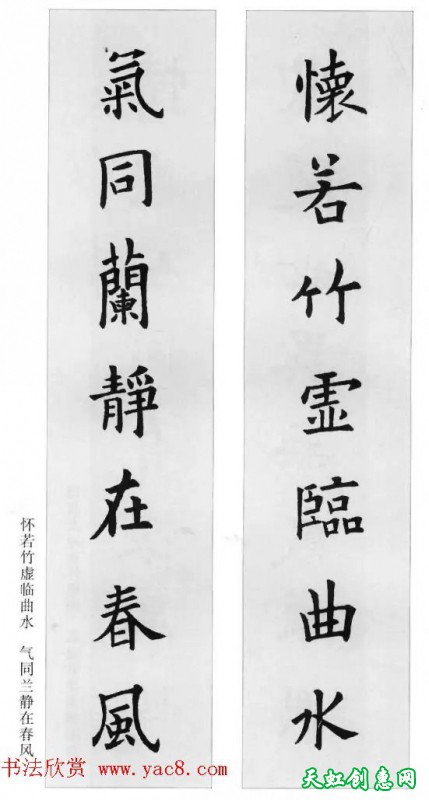 懷若竹虛臨曲水
氣同蘭靜在春風
怀若竹虚临曲水 气同兰静在春风
书法欣赏 www.yac8.com
天虹创惠网